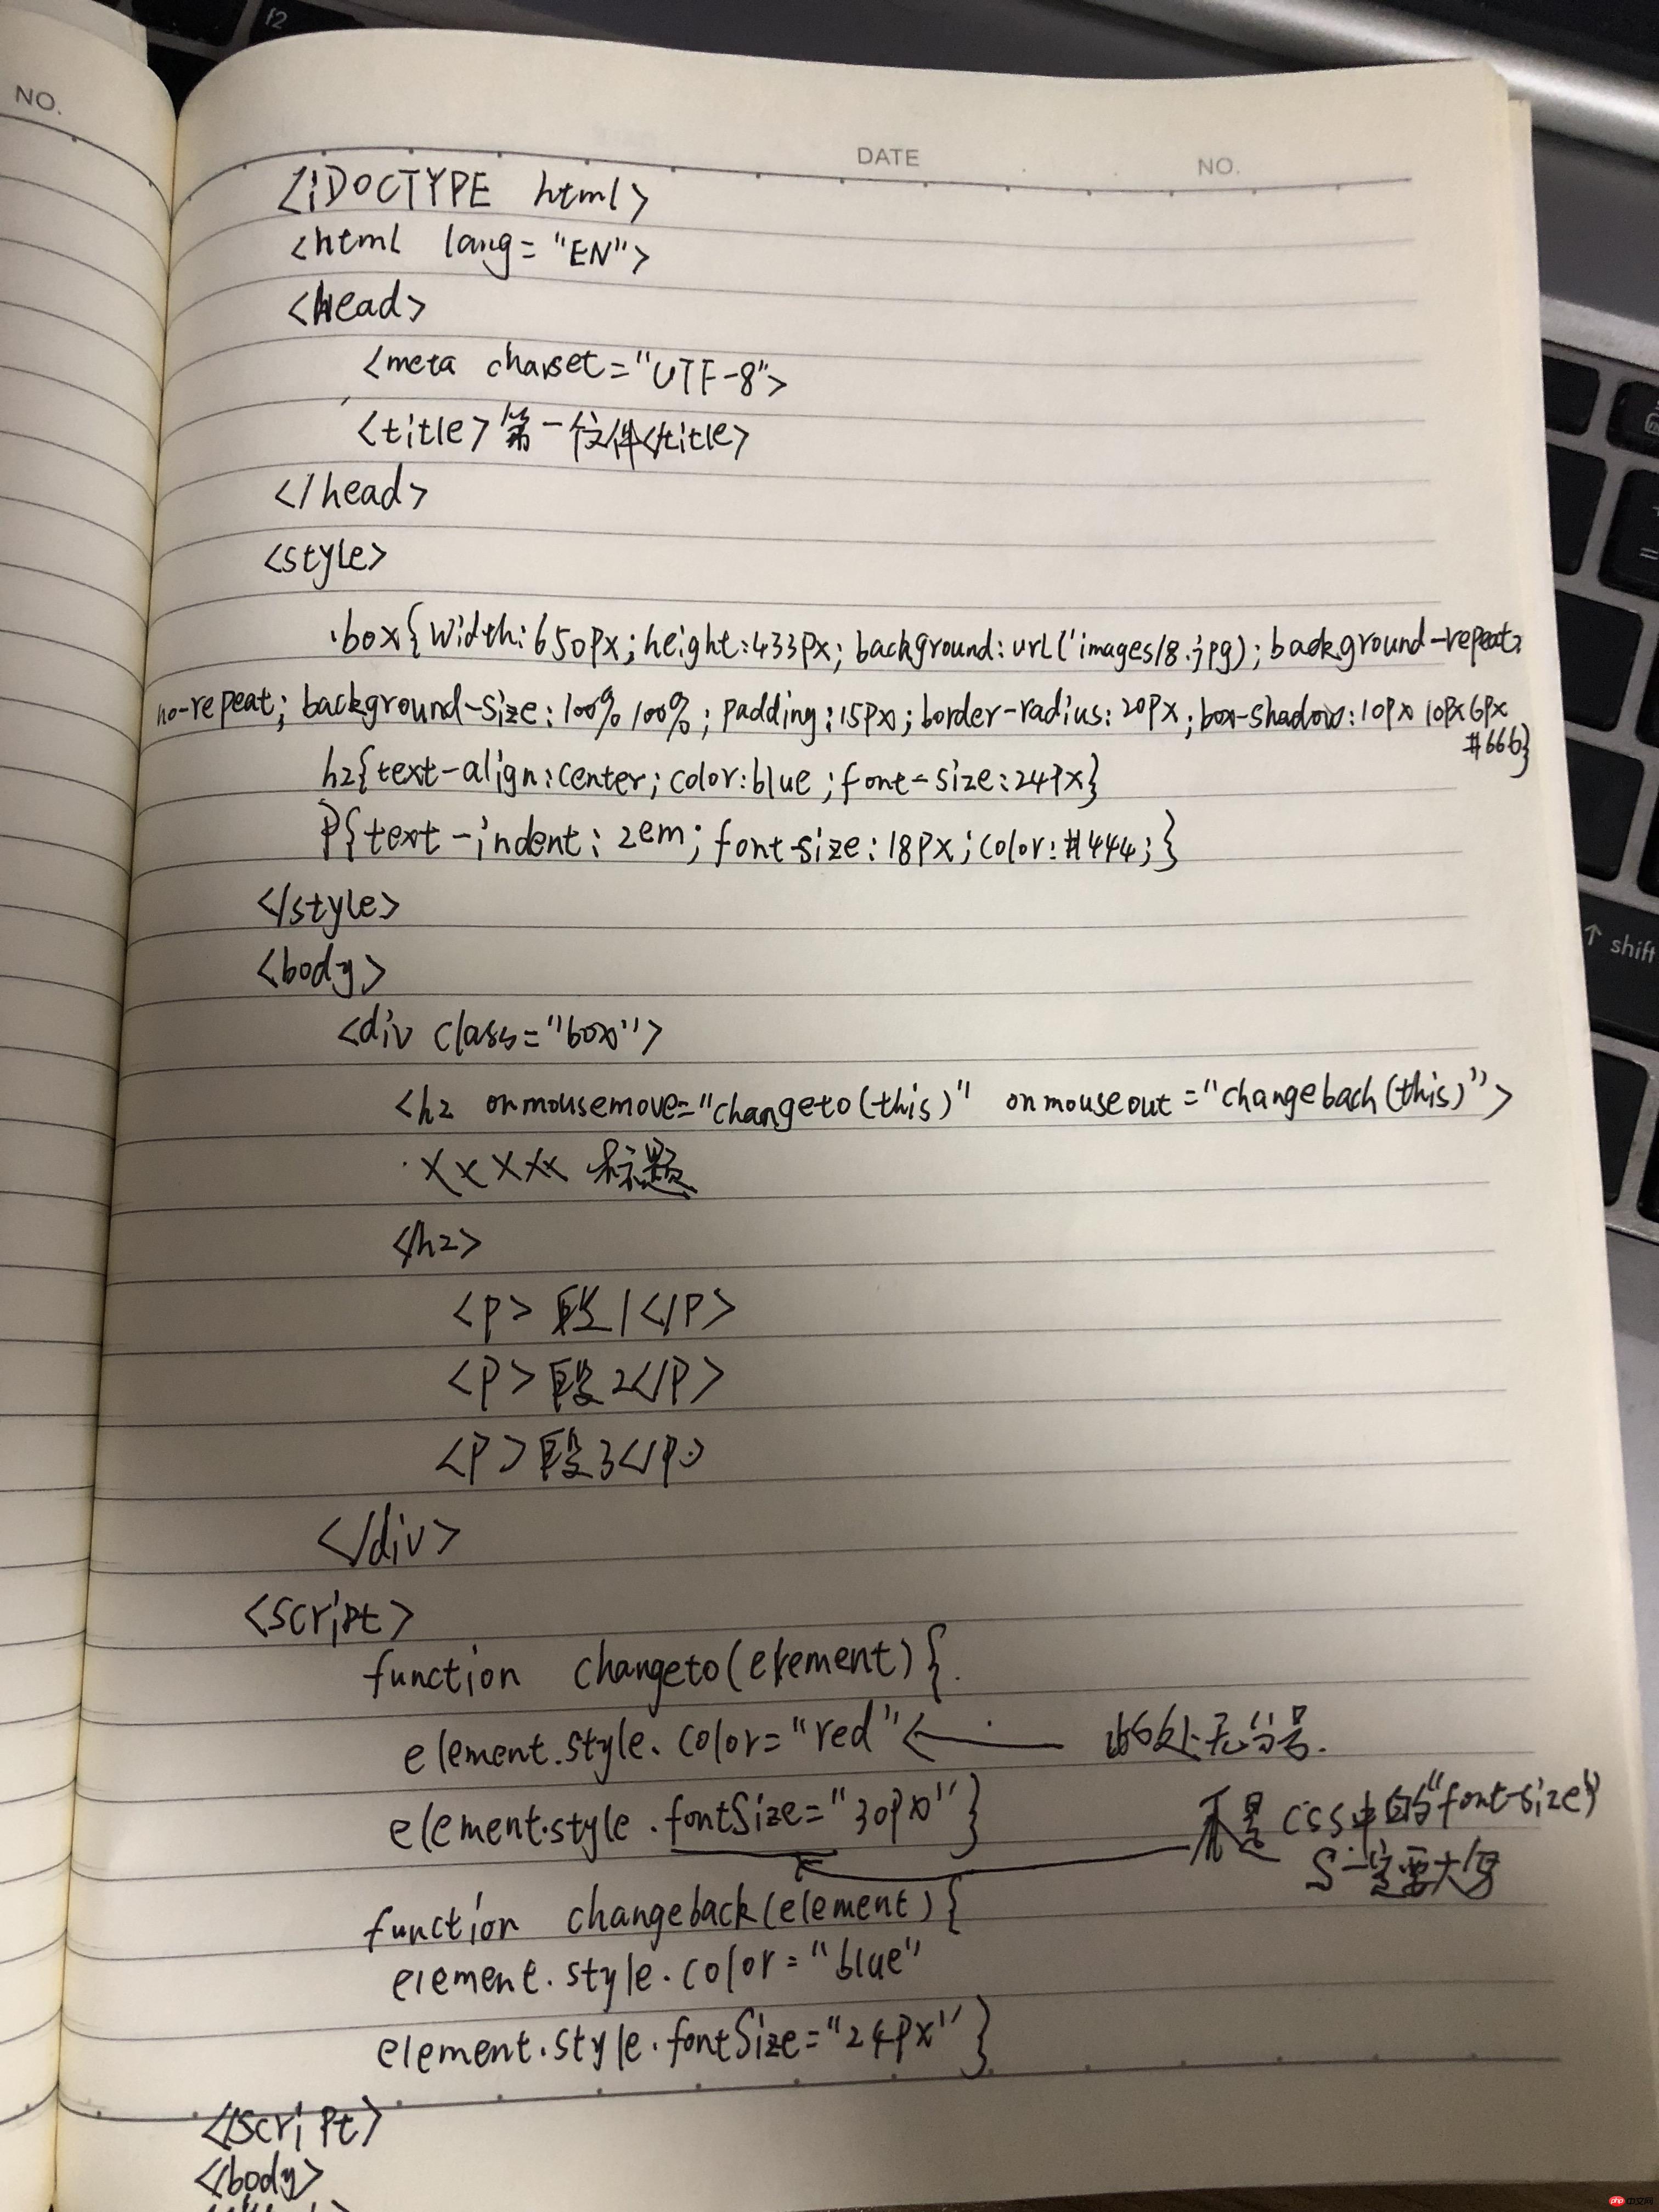 NO.
f2
DATE
NO.
<!DOCTYPE html>
<html lang="EN">
<head>
<meta charset="UTF-8">
<title>第一个文件</title>
</head>
<style>
.box{width:650px;height:433px;background:url('images/8.jpg);background-repeat:
no-repeat;background-size:100% 100%;padding:15px;border-radius:20px;box-shadow:10px 10px 6px
#666}
h2{text-align:center;color:blue;font-size:24px}
p{text-indent:2em;font-size:18px;color:#444;}
</style>
<body>
<div class="box">
<h2 onmousemove="changeto(this)" onmouseout="changeback(this)">
xxxxx 标题
</h2>
<p>段1</p>
<p>段2</p>
<p>段3</p>
</div>
<script>
function changeto(element){
element.style.color="red" 此处无分号.
element.style.fontSize="30px"} 不是css中的"font-size"
S一定要大写
function changeback(element){
element.style.color="blue"
element.style.fontSize="24px"}
</script>
</body>
shift
php 中文网